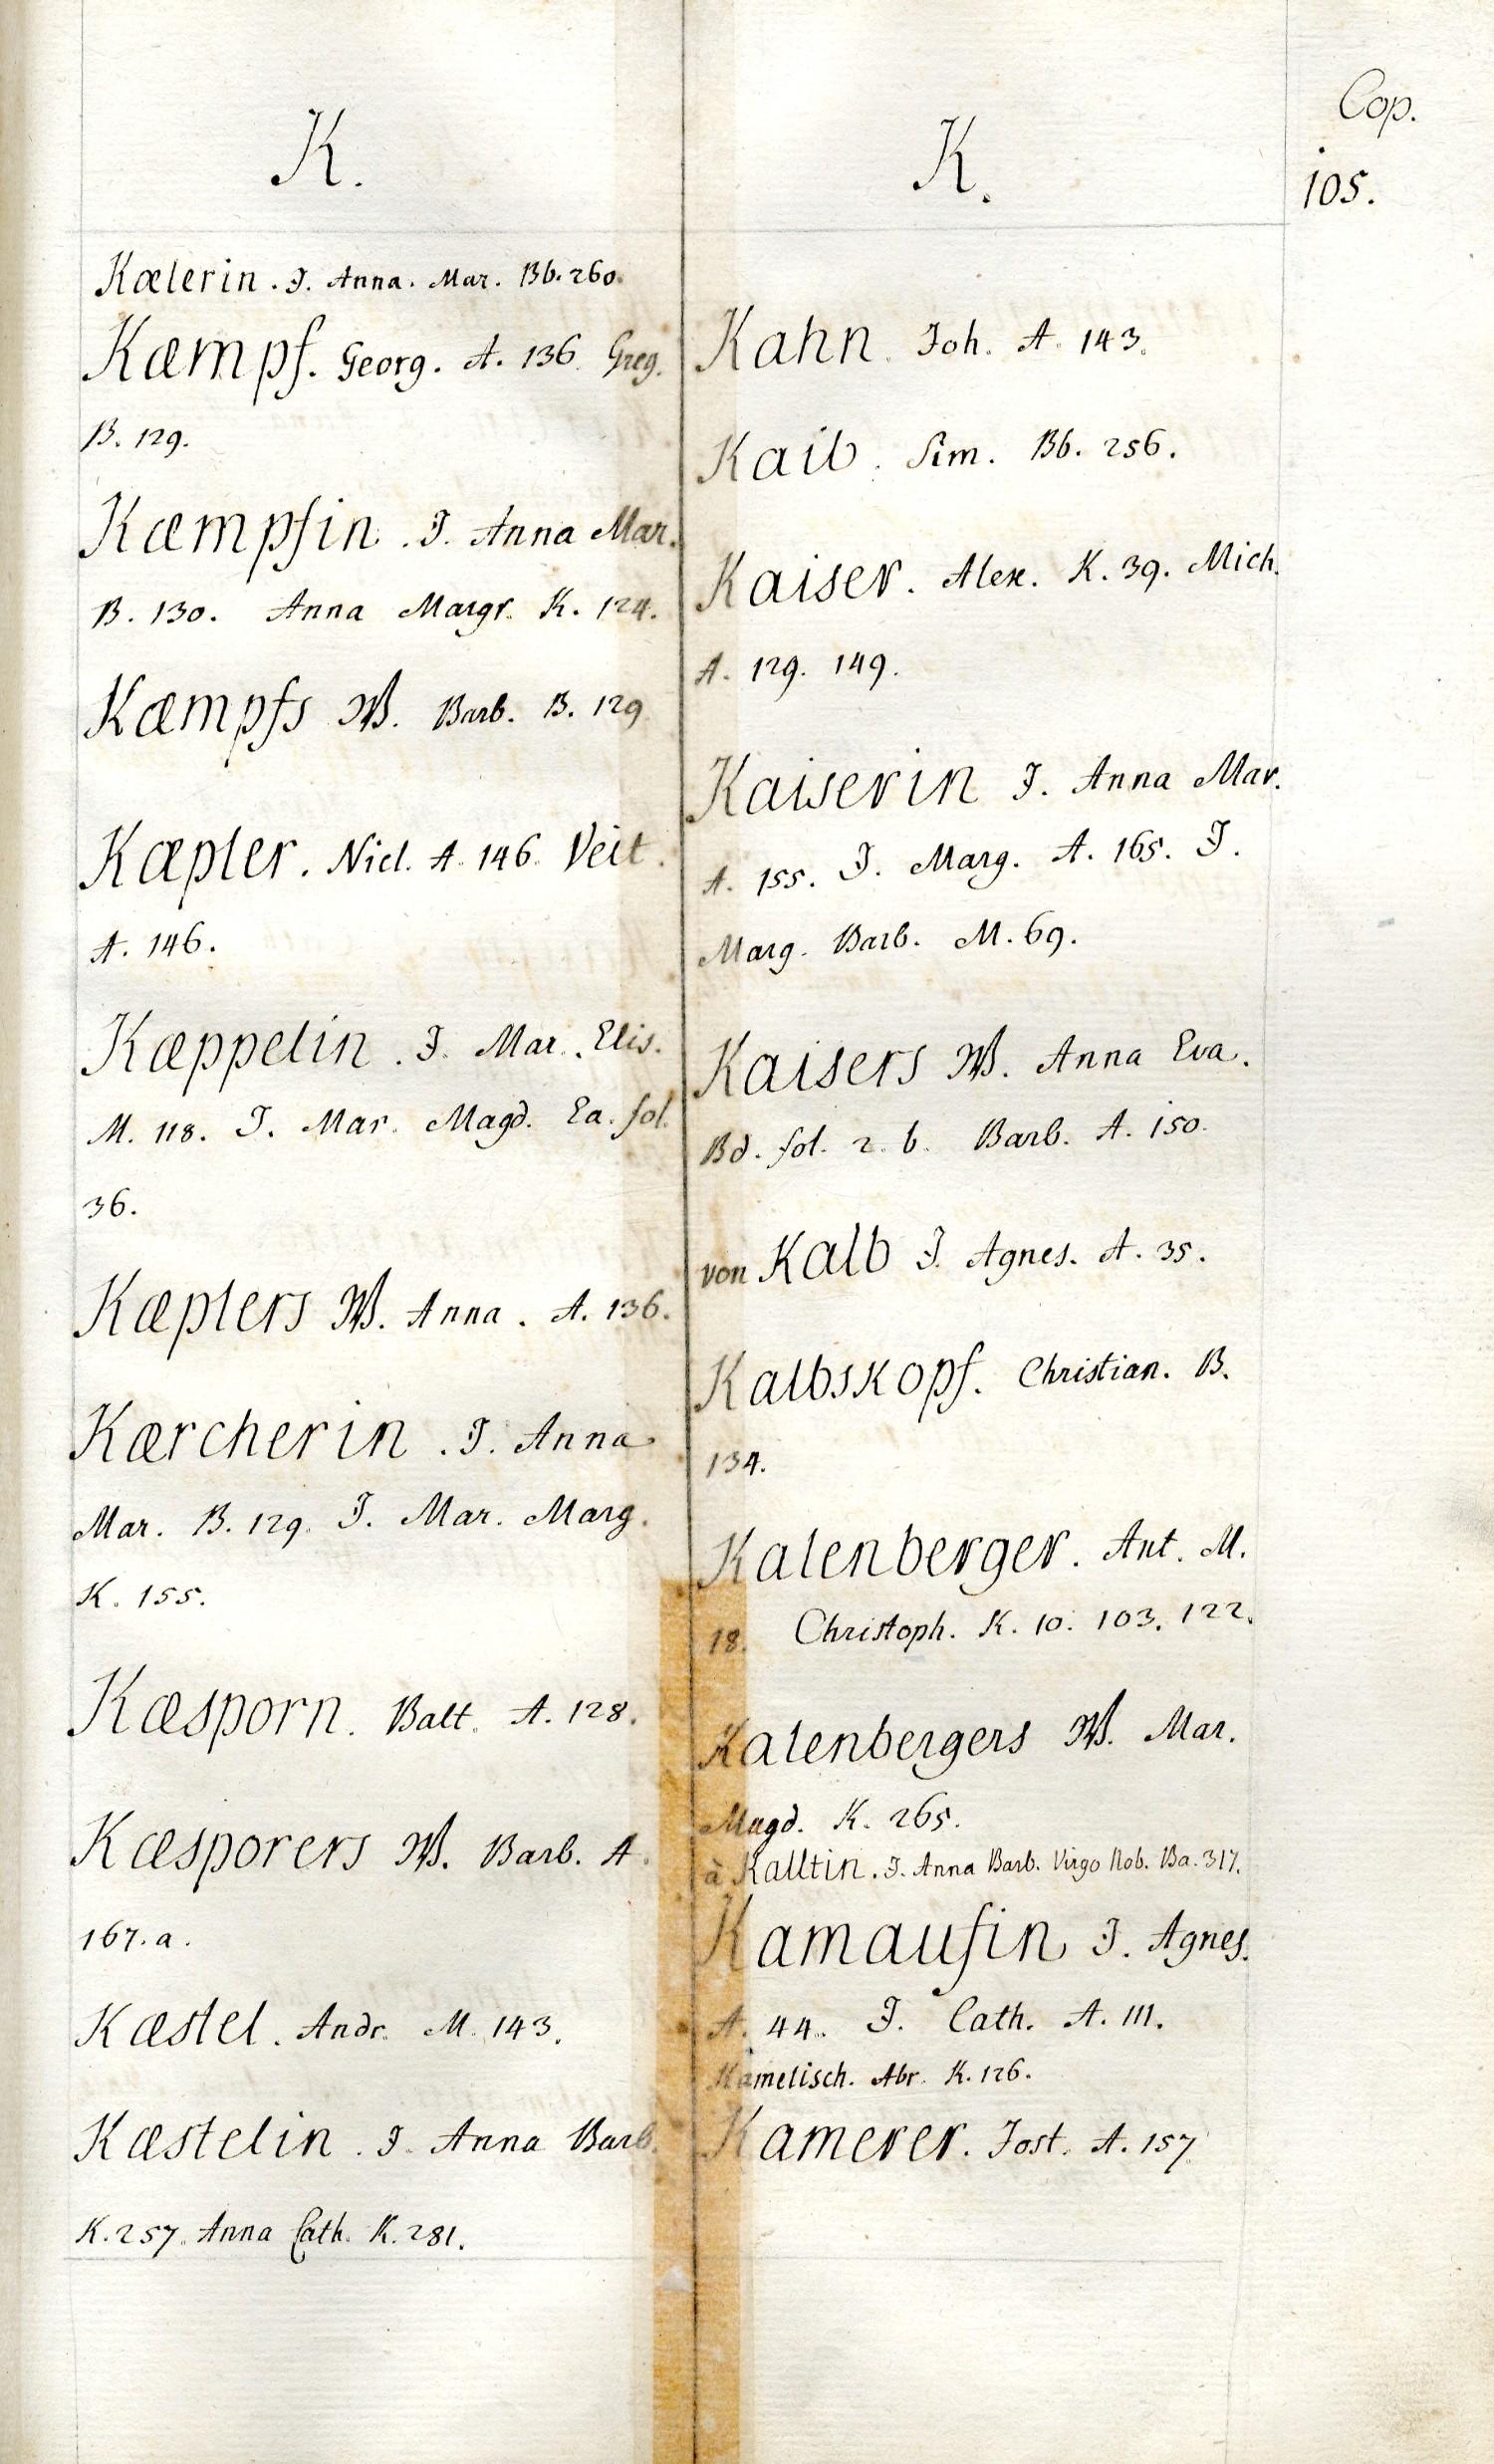 Cop.
105.
K.
Kælerin. J. Anna. Mar. Bb. 260.
Kæmpf. Georg. A. 136. Greg.
B. 129.
Kæmpfin. J. Anna Mar.
B. 130. Anna Margr. K. 124.
Kæmpfs W. Barb. B. 129
Kæpler. Nicl. A. 146. Veit.
A. 146.
Kæppelin. J. Mar. Elis.
M. 118. J. Mar. Magd. Ea. fol.
36.
Kæplers W. Anna. A. 136.
Kærcherin. J. Anna
Mar. B. 129. J. Mar. Marg.
K. 155.
Kæsporn. Balt. A. 128.
Kæsporers W. Barb. A.
167. a.
Kæstel. Andr. M. 143.
Kæstelin. J. Anna Barb.
K. 257. Anna Cath. K. 281.
K.
Kahn. Joh. A. 143.
Kaib. Sim. Bb. 256.
Kaiser. Alex. K. 39. Mich.
A. 129. 149.
Kaiserin J. Anna Mar.
A. 155. J. Marg. A. 165. J.
Marg. Barb. M. 69.
Kaisers W. Anna Eva.
Bd. fol. 2. b. Barb. A. 150.
von Kalb J. Agnes. A. 35.
Kalbskopf. Christian. B.
134.
Kalenberger. Ant. M.
18. Christoph. K. 10. 103. 122.
Kalenbergers W. Mar.
Magd. K. 265.
à Kalltin. J. Anna Barb. Virgo Nob. Ba. 317.
Kamaufin J. Agnes.
A. 44. J. Cath. A. 111.
Kamelisch. Abr. K. 126.
Kamerer. Jost. A. 157